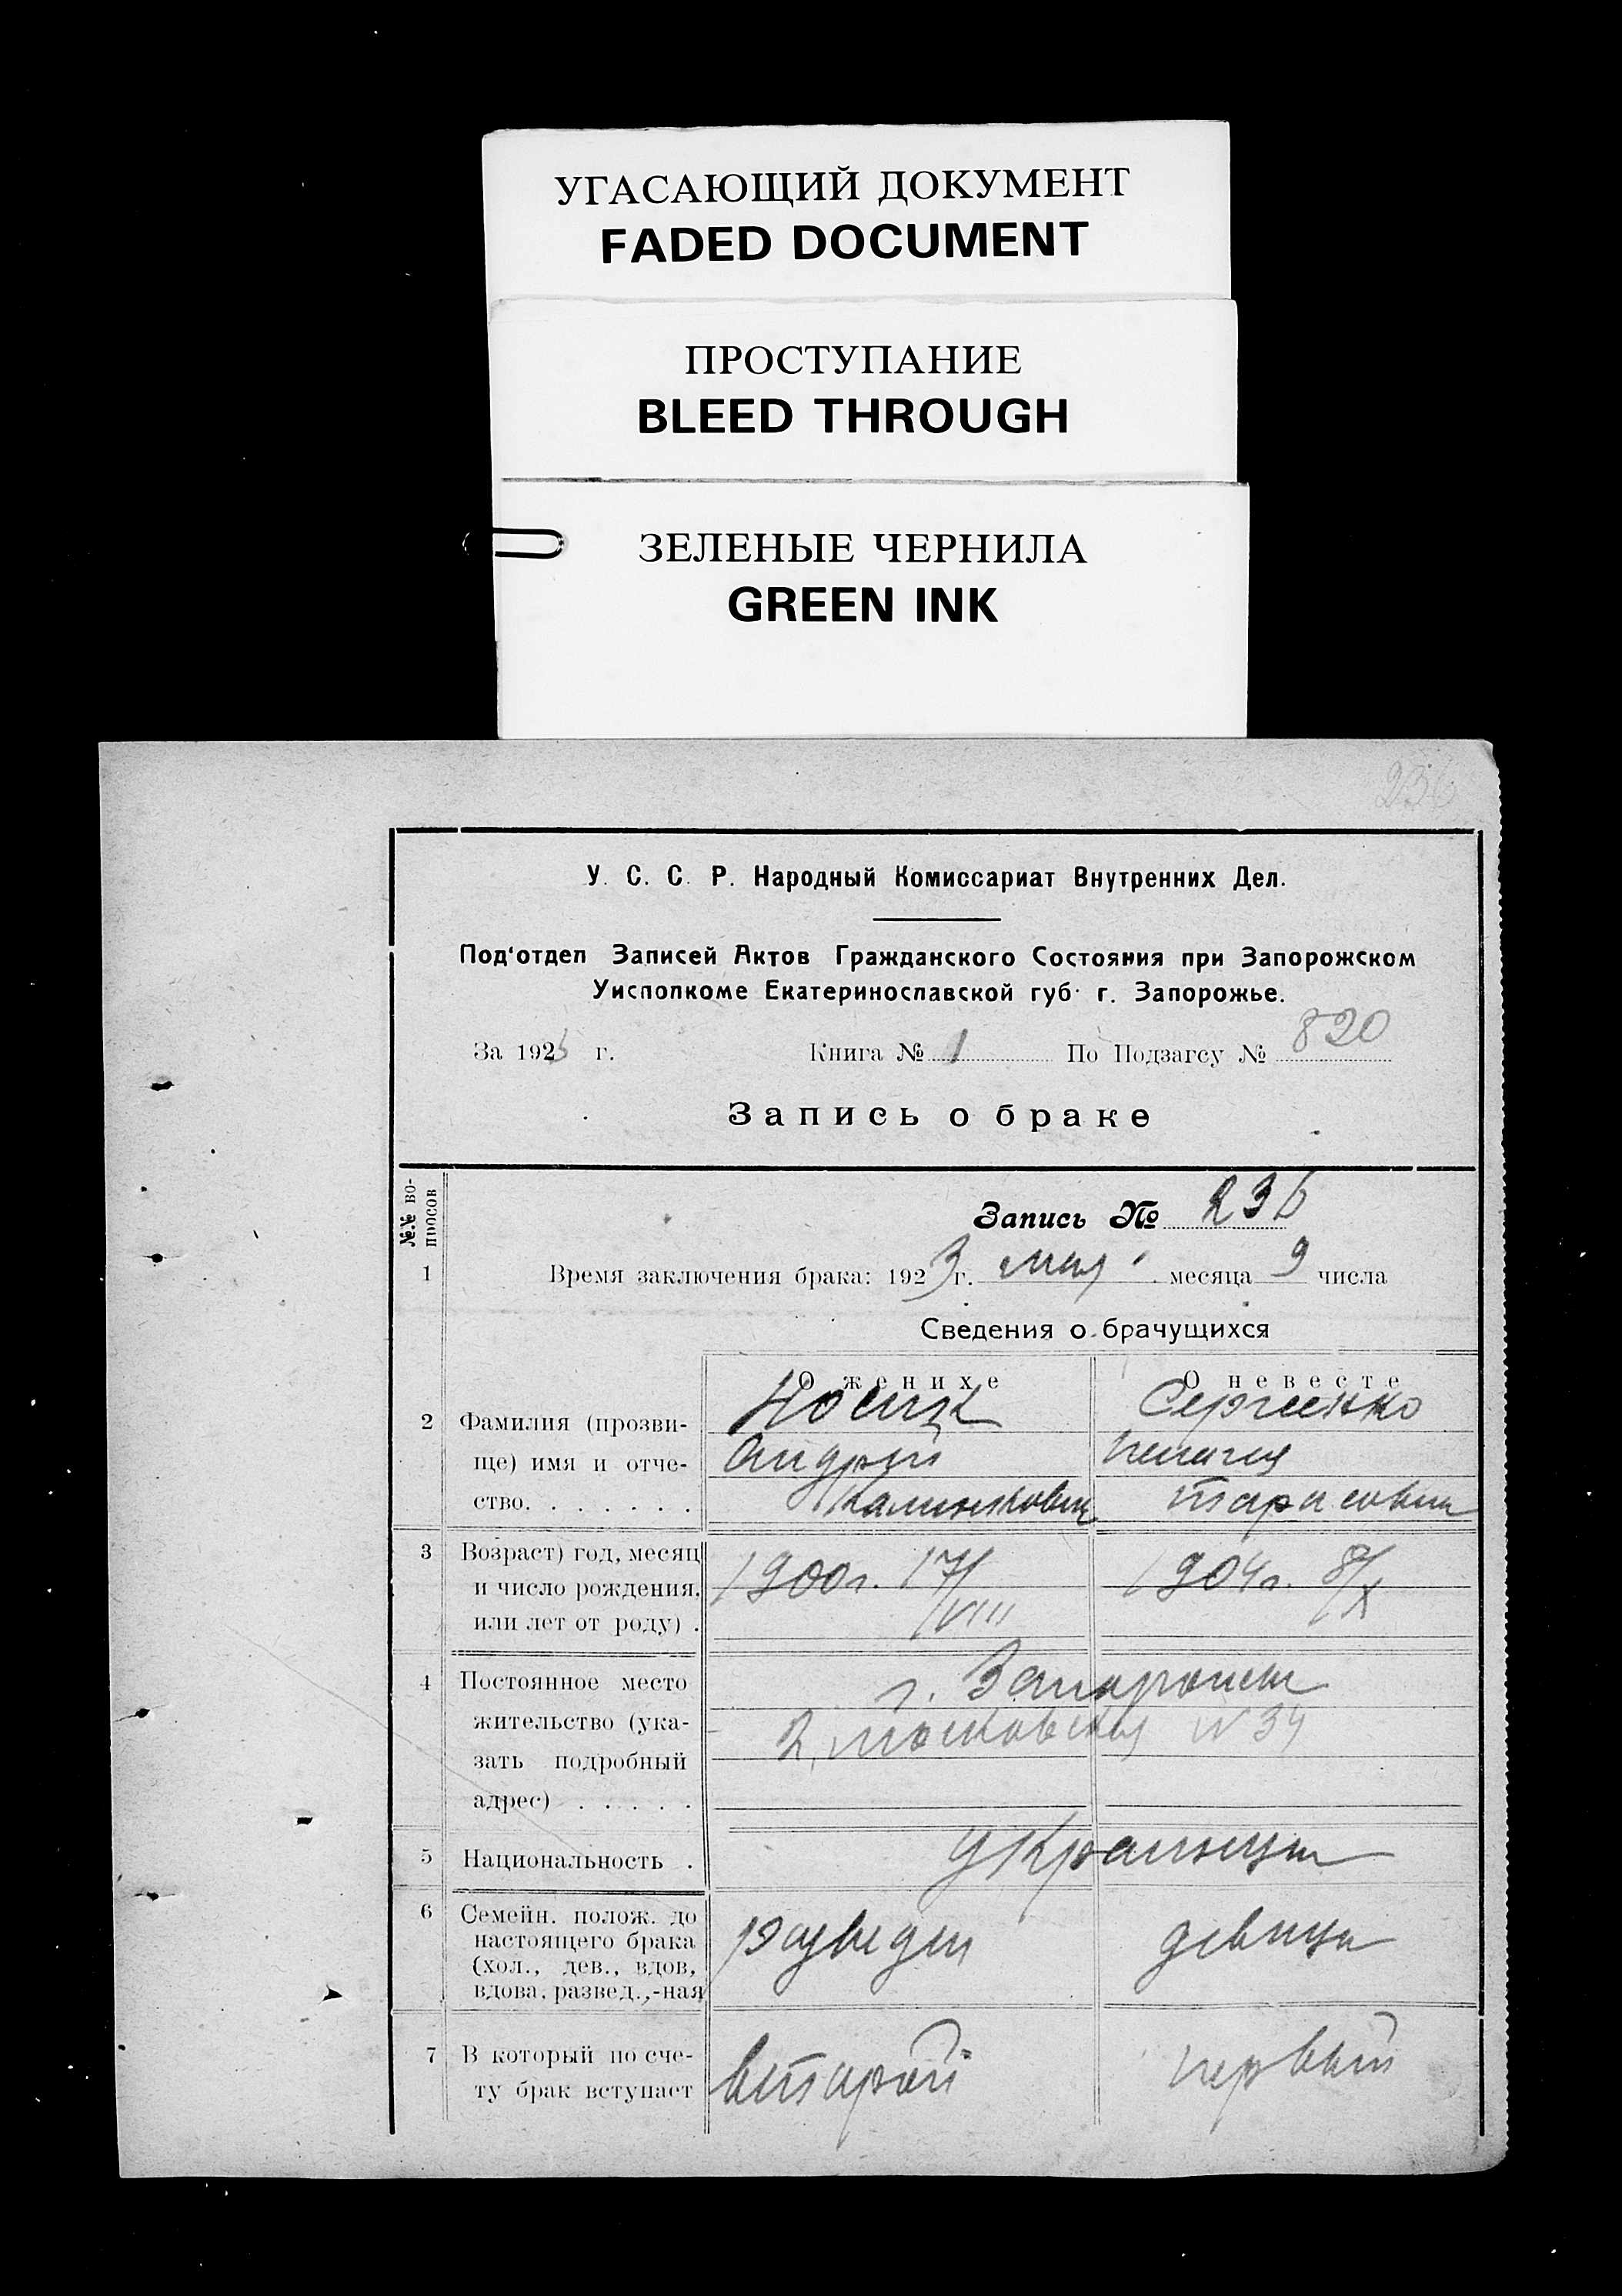 УГАСАЮЩИЙ ДОКУМЕНТ
FADED DOCUMENT
ПРОСТУПАНИЕ
BLEED THROUGH
ЗЕЛЕНЫЕ ЧЕРНИЛА
GREEN INK
236
У. С. С. Р. Народный Комиссариат Внутренних Дел.
Под‘отдел Записей Актов Гражданского Состояния при Запорожском
Уисполкоме Екатеринославской губ. г. Запорожье.
За 1923 г. Книга № 1 По Подзагсу № 820
Запись о браке
№№ во-
просов
Запись № 236
1 Время заключения брака: 1923 г. мая месяца 9 числа
Сведения о брачущихся
О женихе О невесте
2 Фамилия (прозви- Сергиенко
ще) имя и отче- Андрей
ство. . . . . . . Тарасовна
3 Возраст) год, месяц
и число рождения, 1900г. 17/VIII 1904г. 8/X
или лет от роду) .
4 Постоянное место г. Запорожье
жительство (ука- 2, Московская № 34
зать подробный
адрес) . . . . .
5 Национальность . украинцы
6 Семейн. полож. до
настоящего брака разведен девица
(хол., дев., вдов,
вдова, развед.,-ная
7 В который по сче- второй первый
ту брак вступает